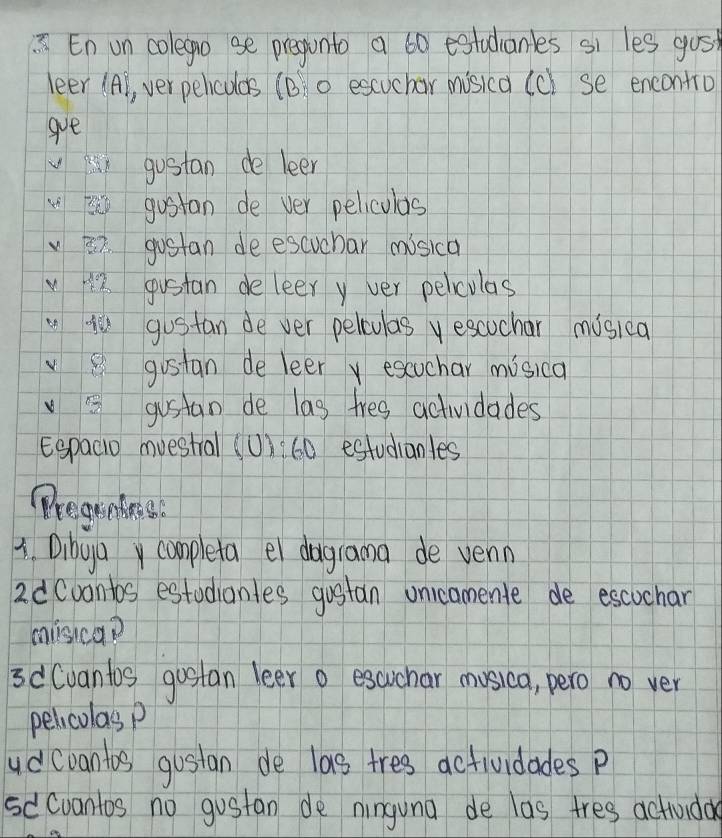 3 En un colegio se pregunto a 60 estudiantes si les gust
leer (A), ver peliculas (B) o escuchar música (C) se encontro
que
gustan de leer
30 gustan de ver peliculas
32 gustan de escuchar música
12 gustan de leer y ver peliculas
10 gustan de ver peliculas y escuchar música
8 gustan de leer y escuchar música
5 gustan de las tres actividades
Espacio muestral (U): 60 estudiantes
Preguntas:
1. Dibuja y completa el diagrama de venn
2d Cuantos estudiantes gustan unicamente de escuchar
música?
3d Cuantos gustan leer o escuchar musica, pero no ver
peliculas?
4d Cuantos gustan de las tres actividades?
5d Cuantos no gustan de ninguna de las tres actividad